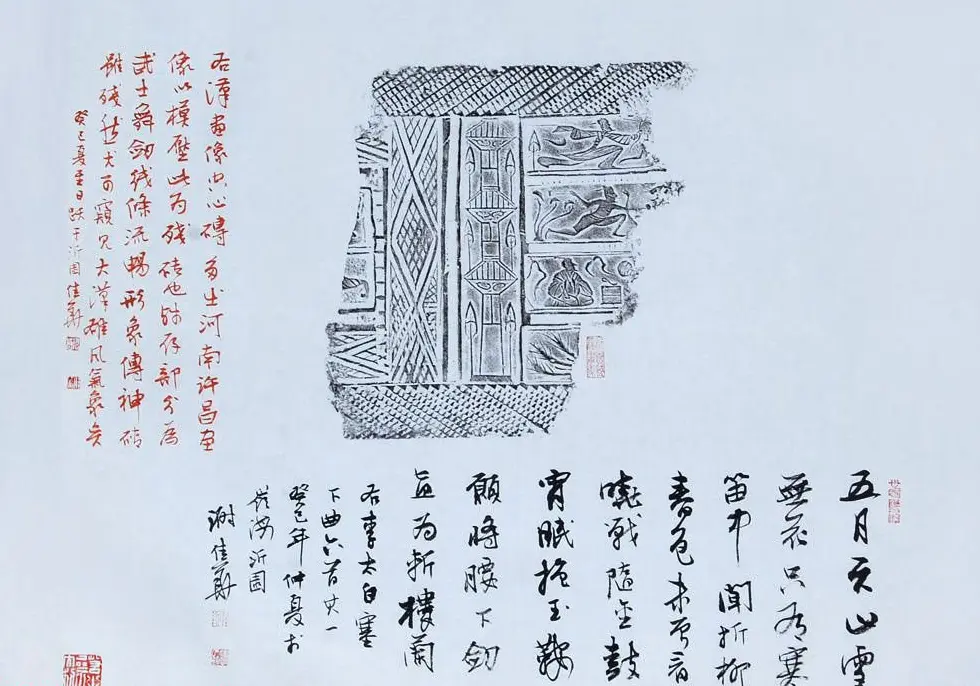 右漢畫像空心磚多出河南許昌畫
像以模壓此为残砖也 存部分為
武士舞劍线條流暢形象傳神
雖殘然尤可窺見大漢雄风氣象矣
癸巳夏至日跋于沂園佳華
五月天山雪
無花只有寒
笛中聞折柳
春色未曾看
曉戰隨金鼓
宵眠抱玉鞍
願將腰下劍
直为斬樓蘭
右李太白塞
下曲六首其一
癸巳年仲夏於
沂園
謝佳華